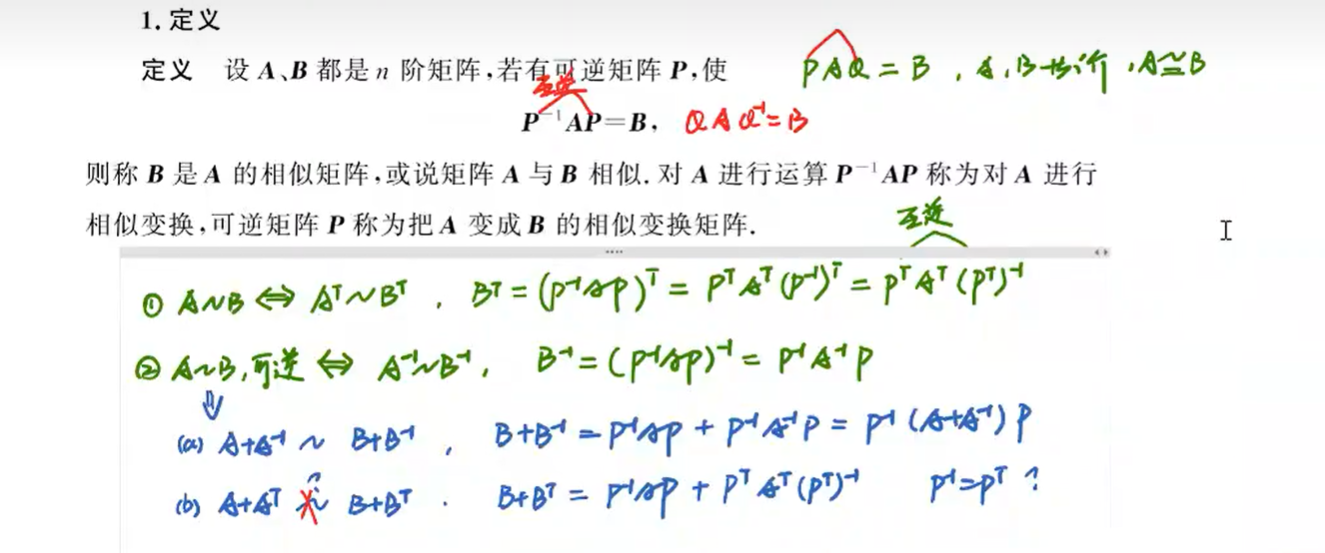 1. 定义
定义 设 A、B 都是 n 阶矩阵,若有可逆矩阵 P,使
PAQ = B , A,B等价 , A≅B
互逆
P⁻¹AP=B, QAQ⁻¹=B
则称 B 是 A 的相似矩阵,或说矩阵 A 与 B 相似. 对 A 进行运算 P⁻¹AP 称为对 A 进行
相似变换,可逆矩阵 P 称为把 A 变成 B 的相似变换矩阵.
互逆
① A~B ⇔ Aᵀ~Bᵀ , Bᵀ = (P⁻¹AP)ᵀ = PᵀAᵀ(P⁻¹)ᵀ = PᵀAᵀ(Pᵀ)⁻¹
② A~B,可逆 ⇔ A⁻¹~B⁻¹, B⁻¹ = (P⁻¹AP)⁻¹ = P⁻¹A⁻¹P
⇓
(a) A+A⁻¹ ~ B+B⁻¹ , B+B⁻¹ = P⁻¹AP + P⁻¹A⁻¹P = P⁻¹(A+A⁻¹)P
?
(b) A+Aᵀ ~ B+Bᵀ . B+Bᵀ = P⁻¹AP + PᵀAᵀ(Pᵀ)⁻¹ P⁻¹=Pᵀ ?